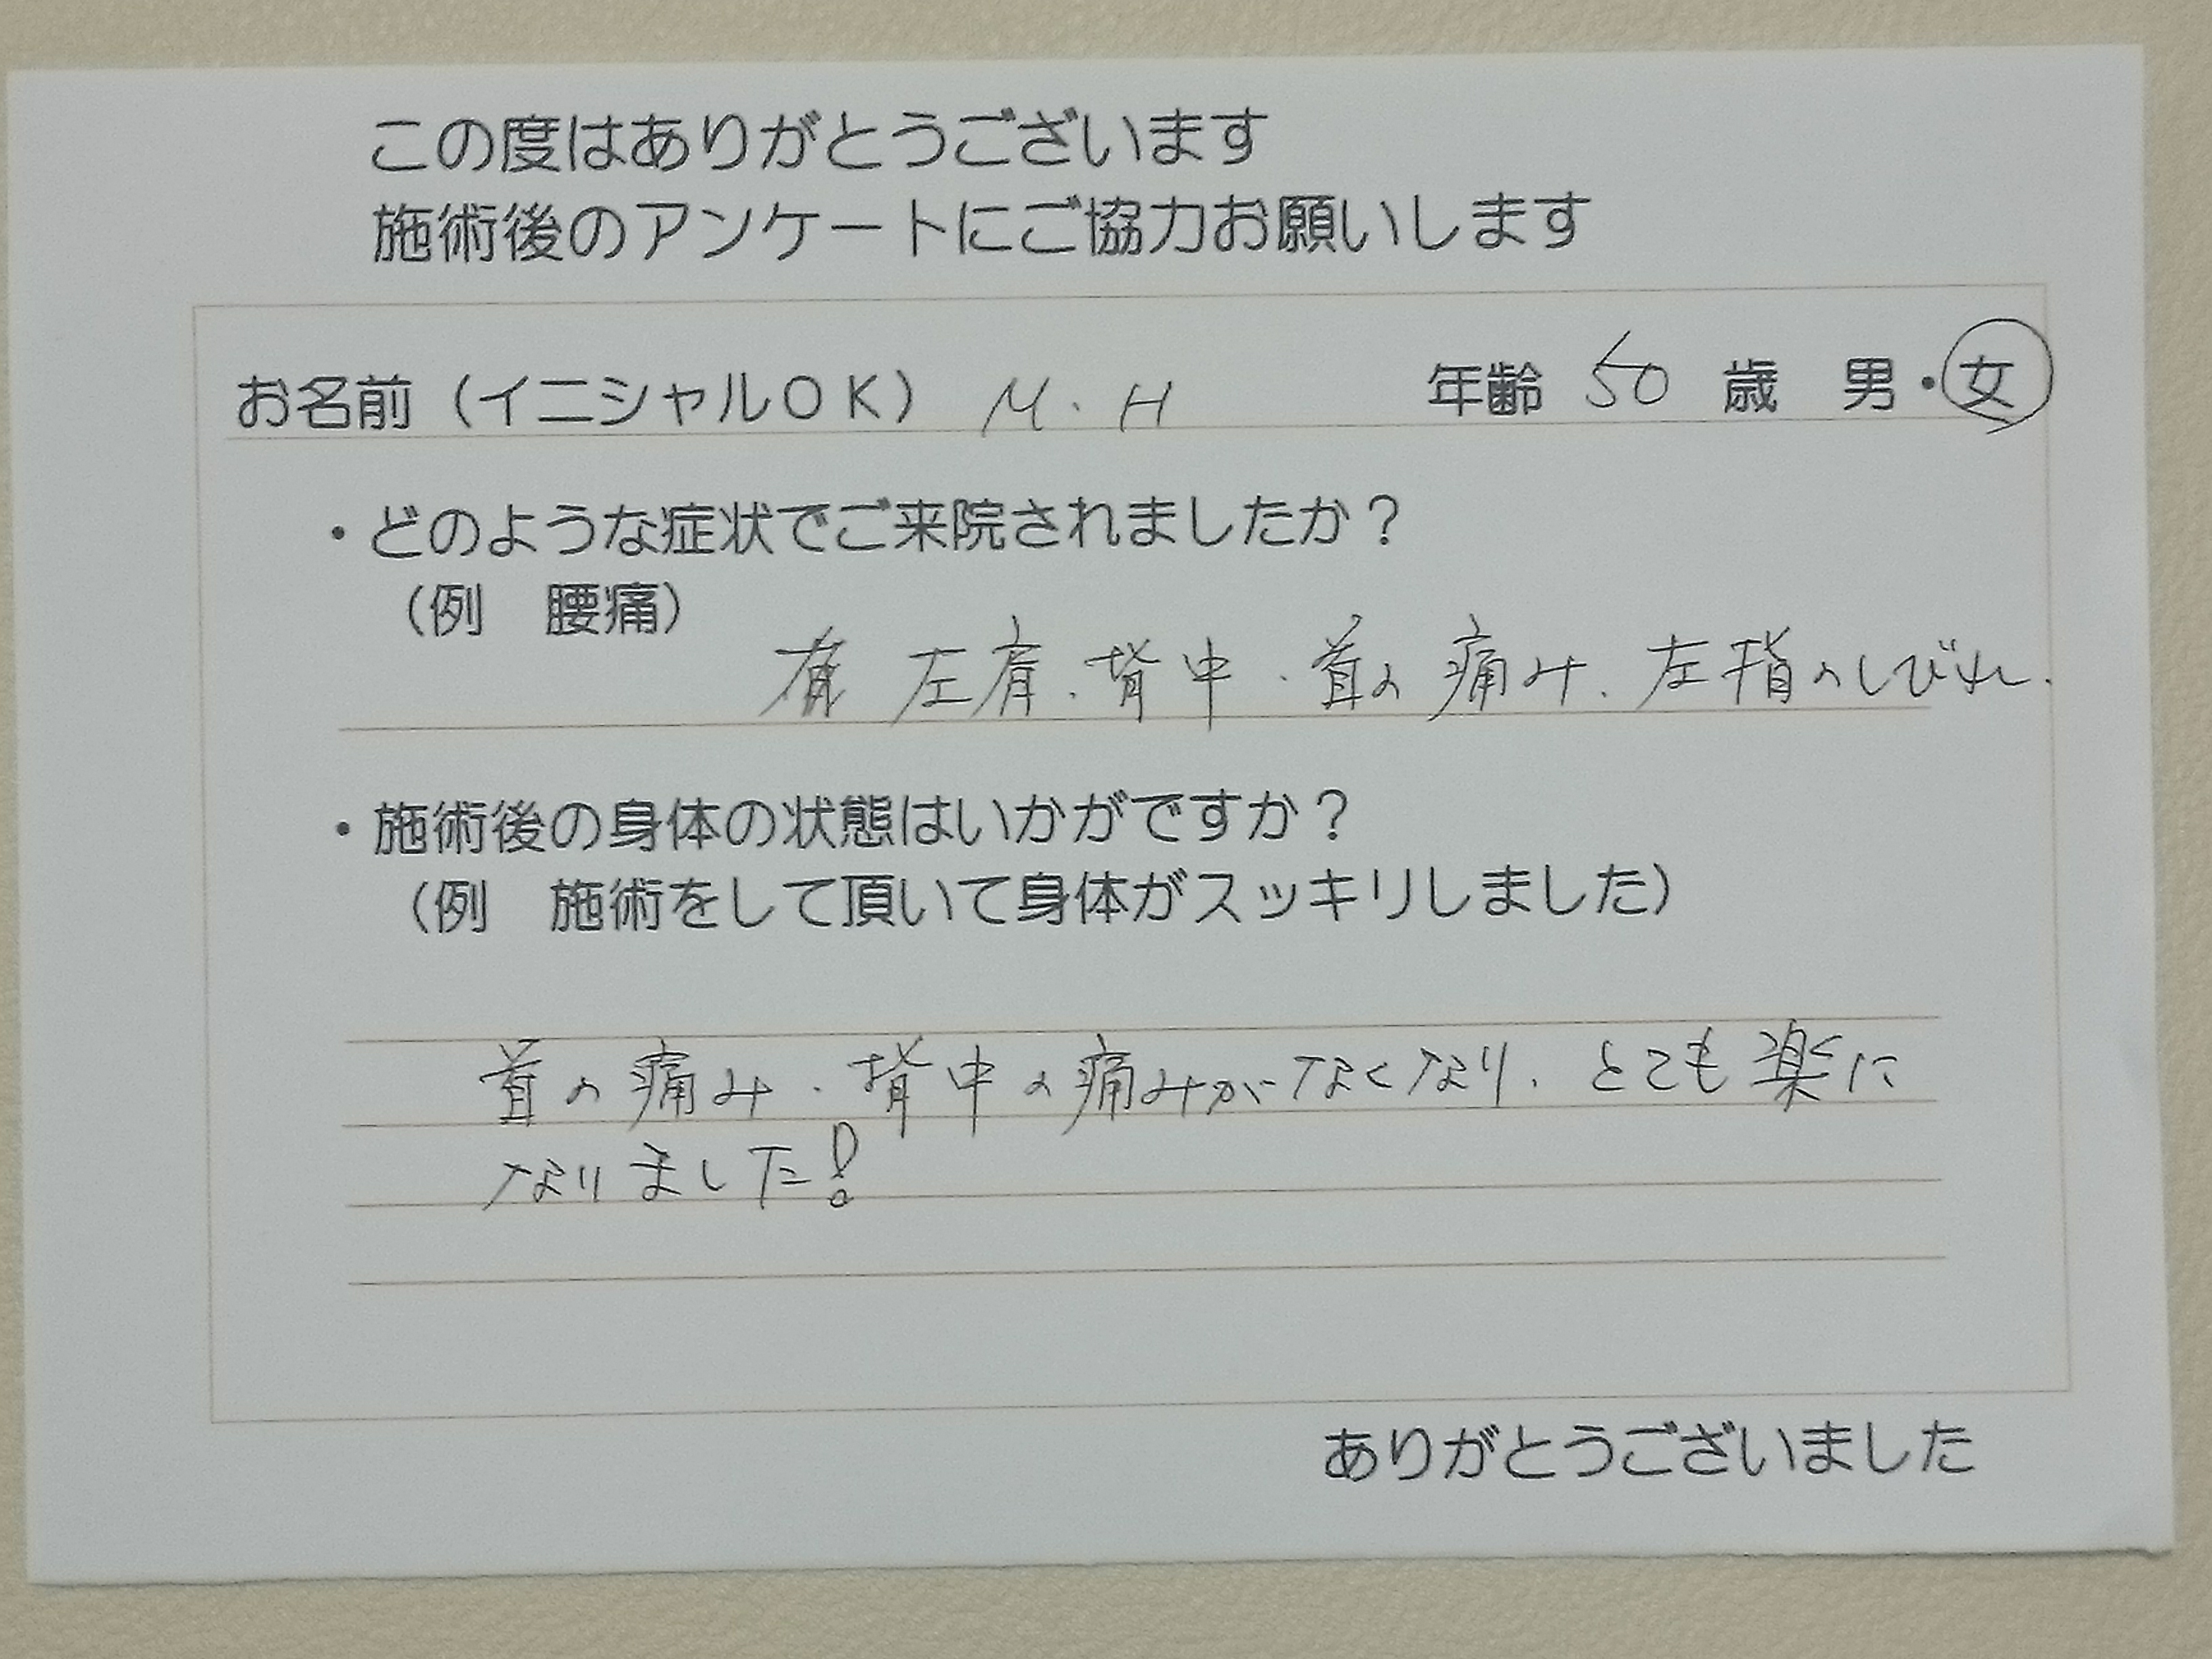 この度はありがとうございます
施術後のアンケートにご協力お願いします
お名前（イニシャルＯＫ） M．H 年齢 50 歳 男・女
・どのような症状でご来院されましたか？
（例 腰痛）
左肩、背中・首の痛み、左指のしびれ．
・施術後の身体の状態はいかがですか？
（例 施術をして頂いて身体がスッキリしました）
首の痛み・背中の痛みがなくなり、とても楽に
なりました！
ありがとうございました